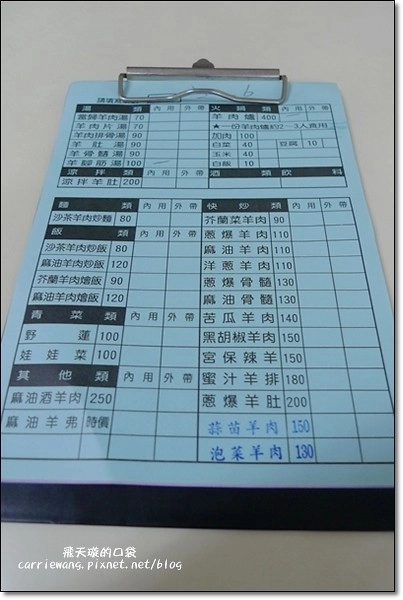 湯 類 內用 外帶
當歸羊肉湯 70
羊肉片湯 70
羊肉排骨湯 90
羊肚湯 90
羊骨髓湯 90
羊腳筋湯 90
涼拌類 內用 外帶
涼拌羊肚 200
火鍋類 內用 外帶
羊肉爐 400
★一份羊肉爐約2~3人食用
加肉 100
白菜 40 豆腐 10
玉米 40
白飯 10
酒類飲料
麵 類 內用 外帶
沙茶羊肉炒麵 80
飯 類 內用 外帶
沙茶羊肉炒飯 80
麻油羊肉炒飯 120
芥蘭羊肉燴飯 90
麻油羊肉燴飯 120
青菜類 內用 外帶
野蓮 100
娃娃菜 100
其他類 內用 外帶
麻油酒羊肉 250
麻油羊弗 時價
快炒類 內用 外帶
芥蘭菜羊肉 90
蔥爆羊肉 110
麻油羊肉 110
洋蔥羊肉 110
蔥爆骨髓 130
麻油骨髓 130
苦瓜羊肉 140
黑胡椒羊肉 150
宮保辣羊 150
蜜汁羊排 180
蔥爆羊肚 200
蒜苗羊肉 150
泡菜羊肉 130
飛天璇的口袋
carriewang.pixnet.net/blog